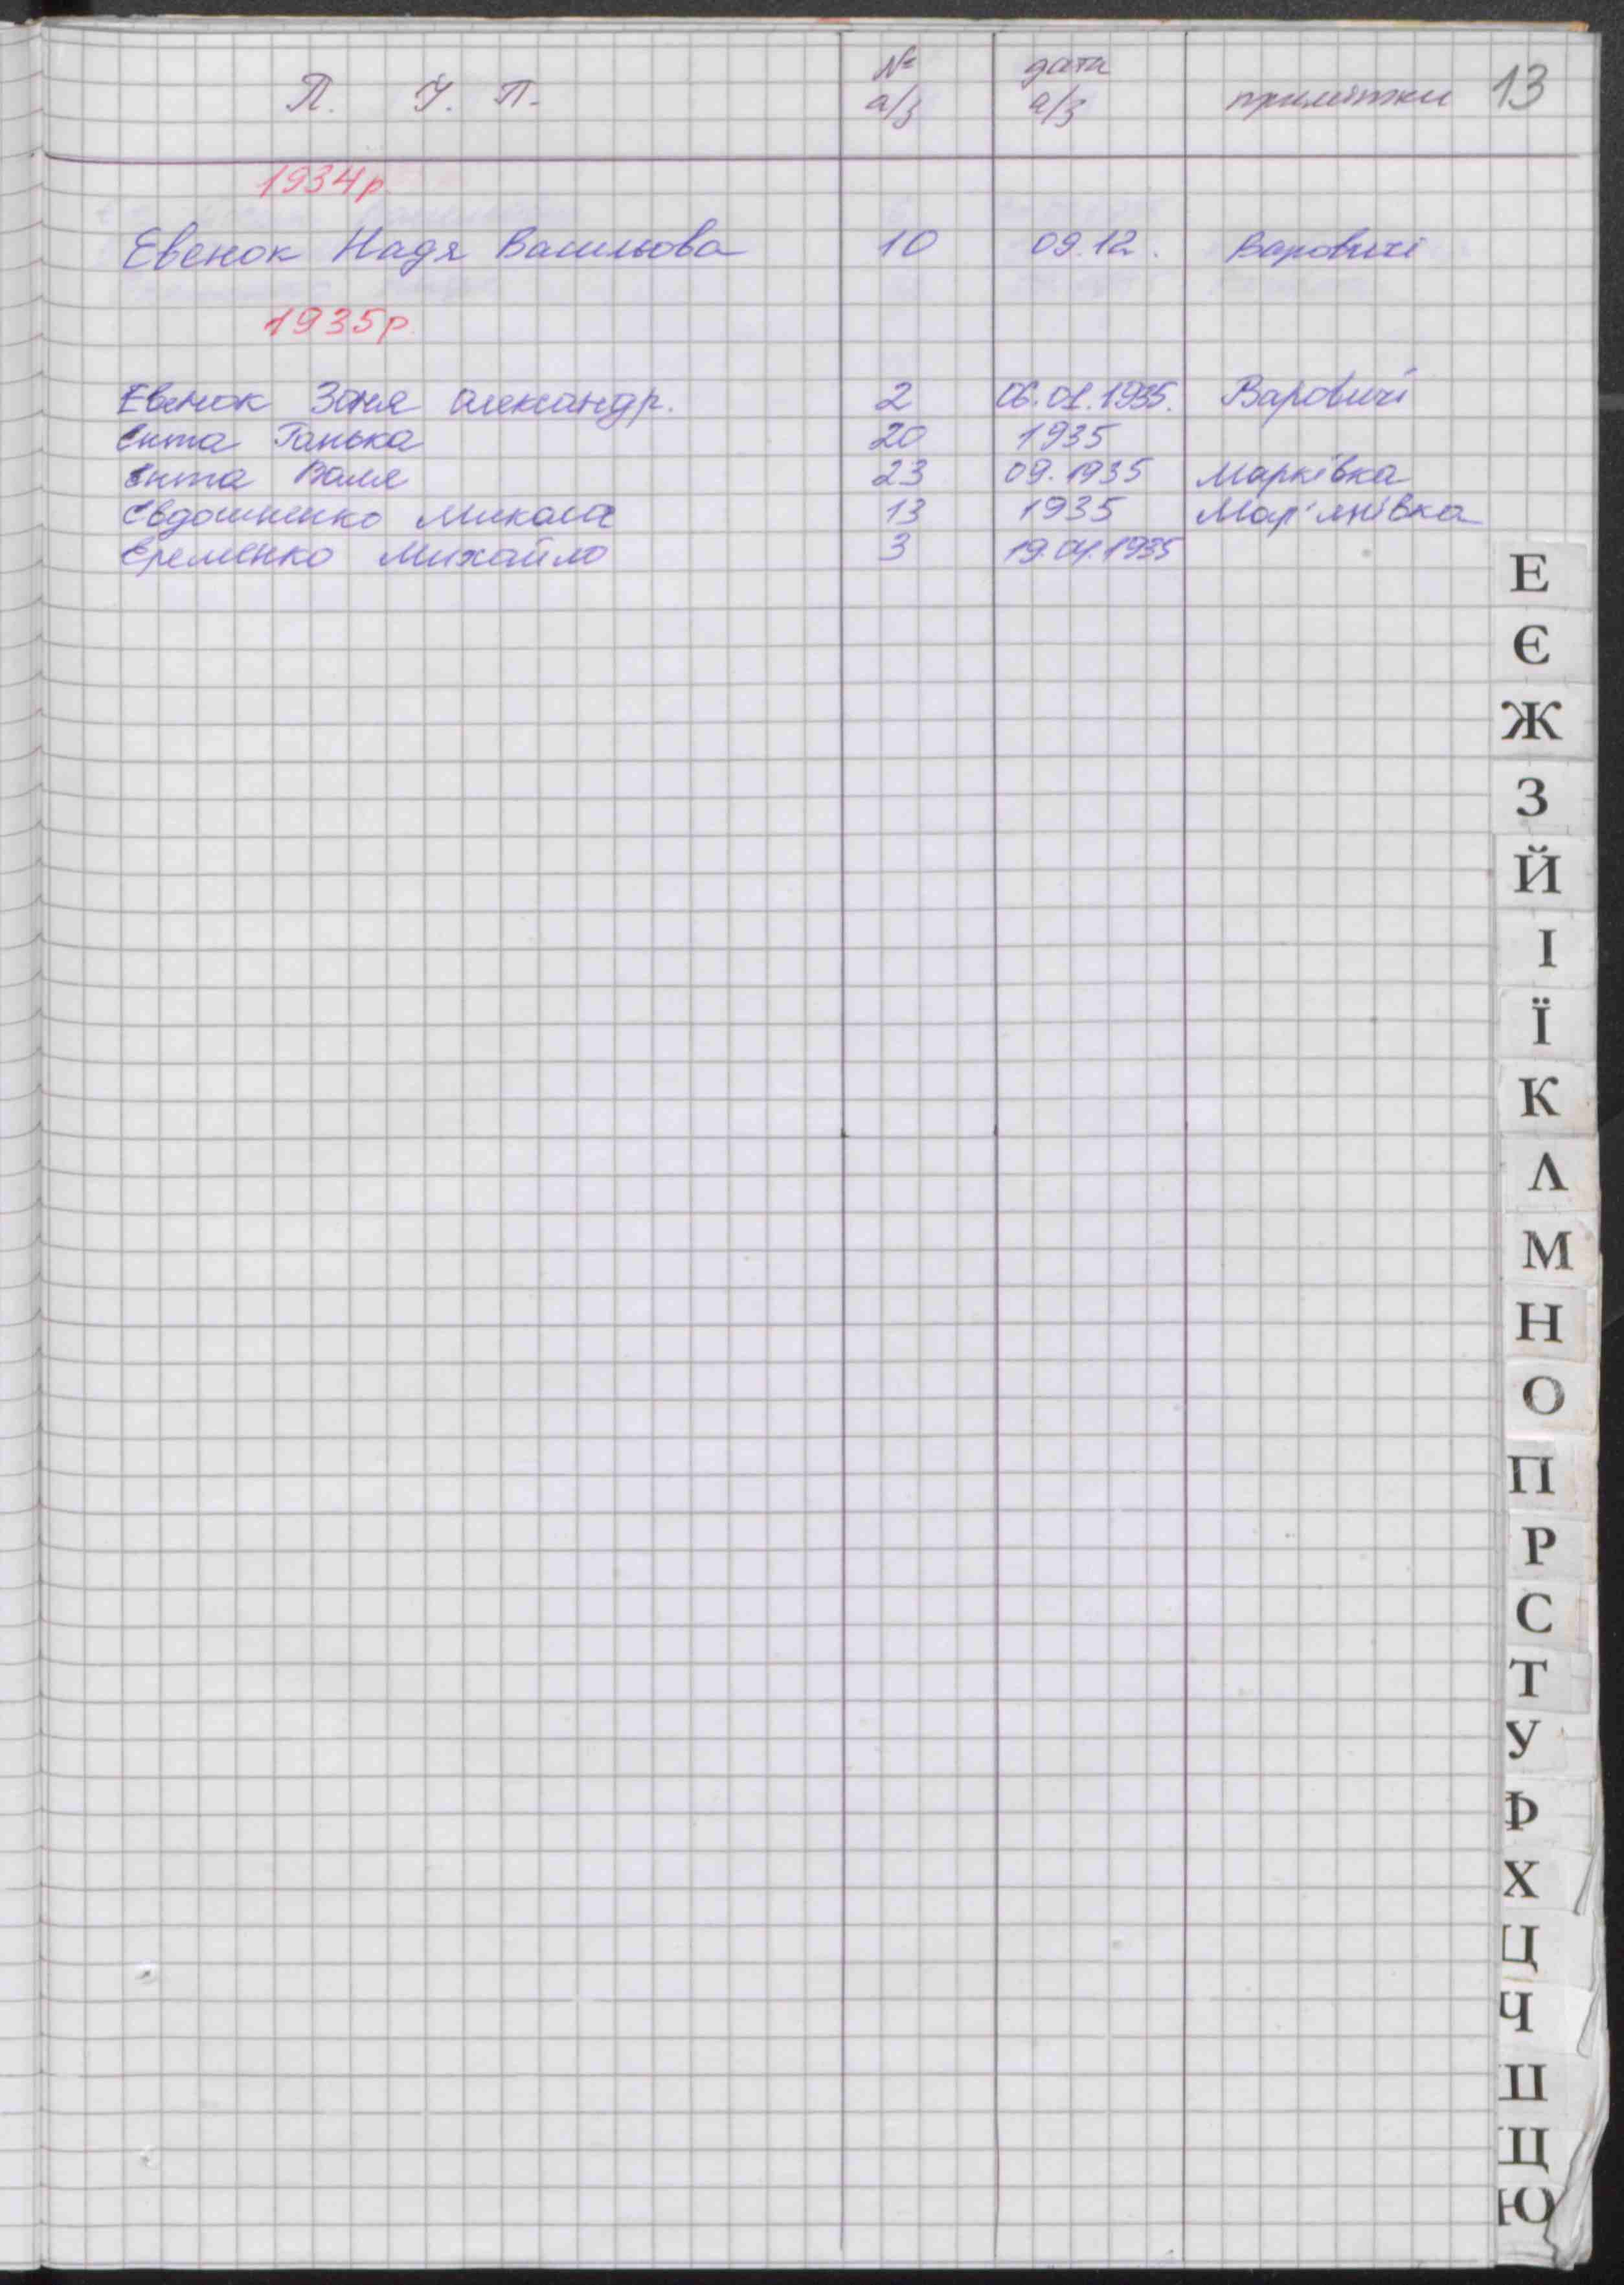 П. І. П. № а/з дата а/з примітки 13
1934р
Евенок Надя Васильова 10 09.12. Варовичі
1935р.
Евенок Зоня Олександр. 2 06.01.1935. Варовичі
Єнта Ганька 20 1935
Єнта Валя 23 09.1935 Марківка
Євдошненко Микола 13 1935 Мар'янівка
Єременко Михайло 3 19.04.1935
Е
Є
Ж
З
Й
І
Ї
К
Л
М
Н
О
П
Р
С
Т
У
Ф
Х
Ц
Ч
Ш
Щ
Ю